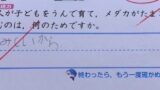 人が子どもをうんで育て，メダカがたま
むのは，何のためですか。
みらいから
終わったら，もう一度確かめ